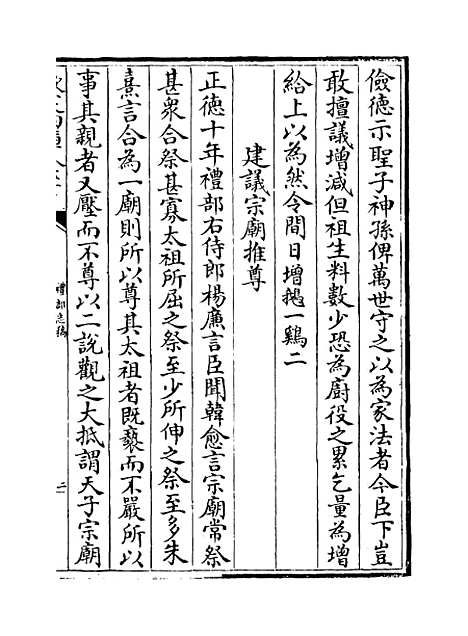 儉德示聖子神孫俾萬世守之以為家法者今臣下豈
敢擅議增減但祖生料數少恐為廚役之累乞量為增
給上以為然令間日增鵝一鷄二
建議宗廟推尊
正德十年禮部右侍郎楊廉言臣聞韓愈言宗廟常祭
甚衆合祭甚寡太祖所屈之祭至少所伸之祭至多朱
熹言合為一廟則所以尊其太祖者既褻而不嚴所以
事其親者又壓而不尊以二說觀之大抵謂天子宗廟
禮部志稿
二